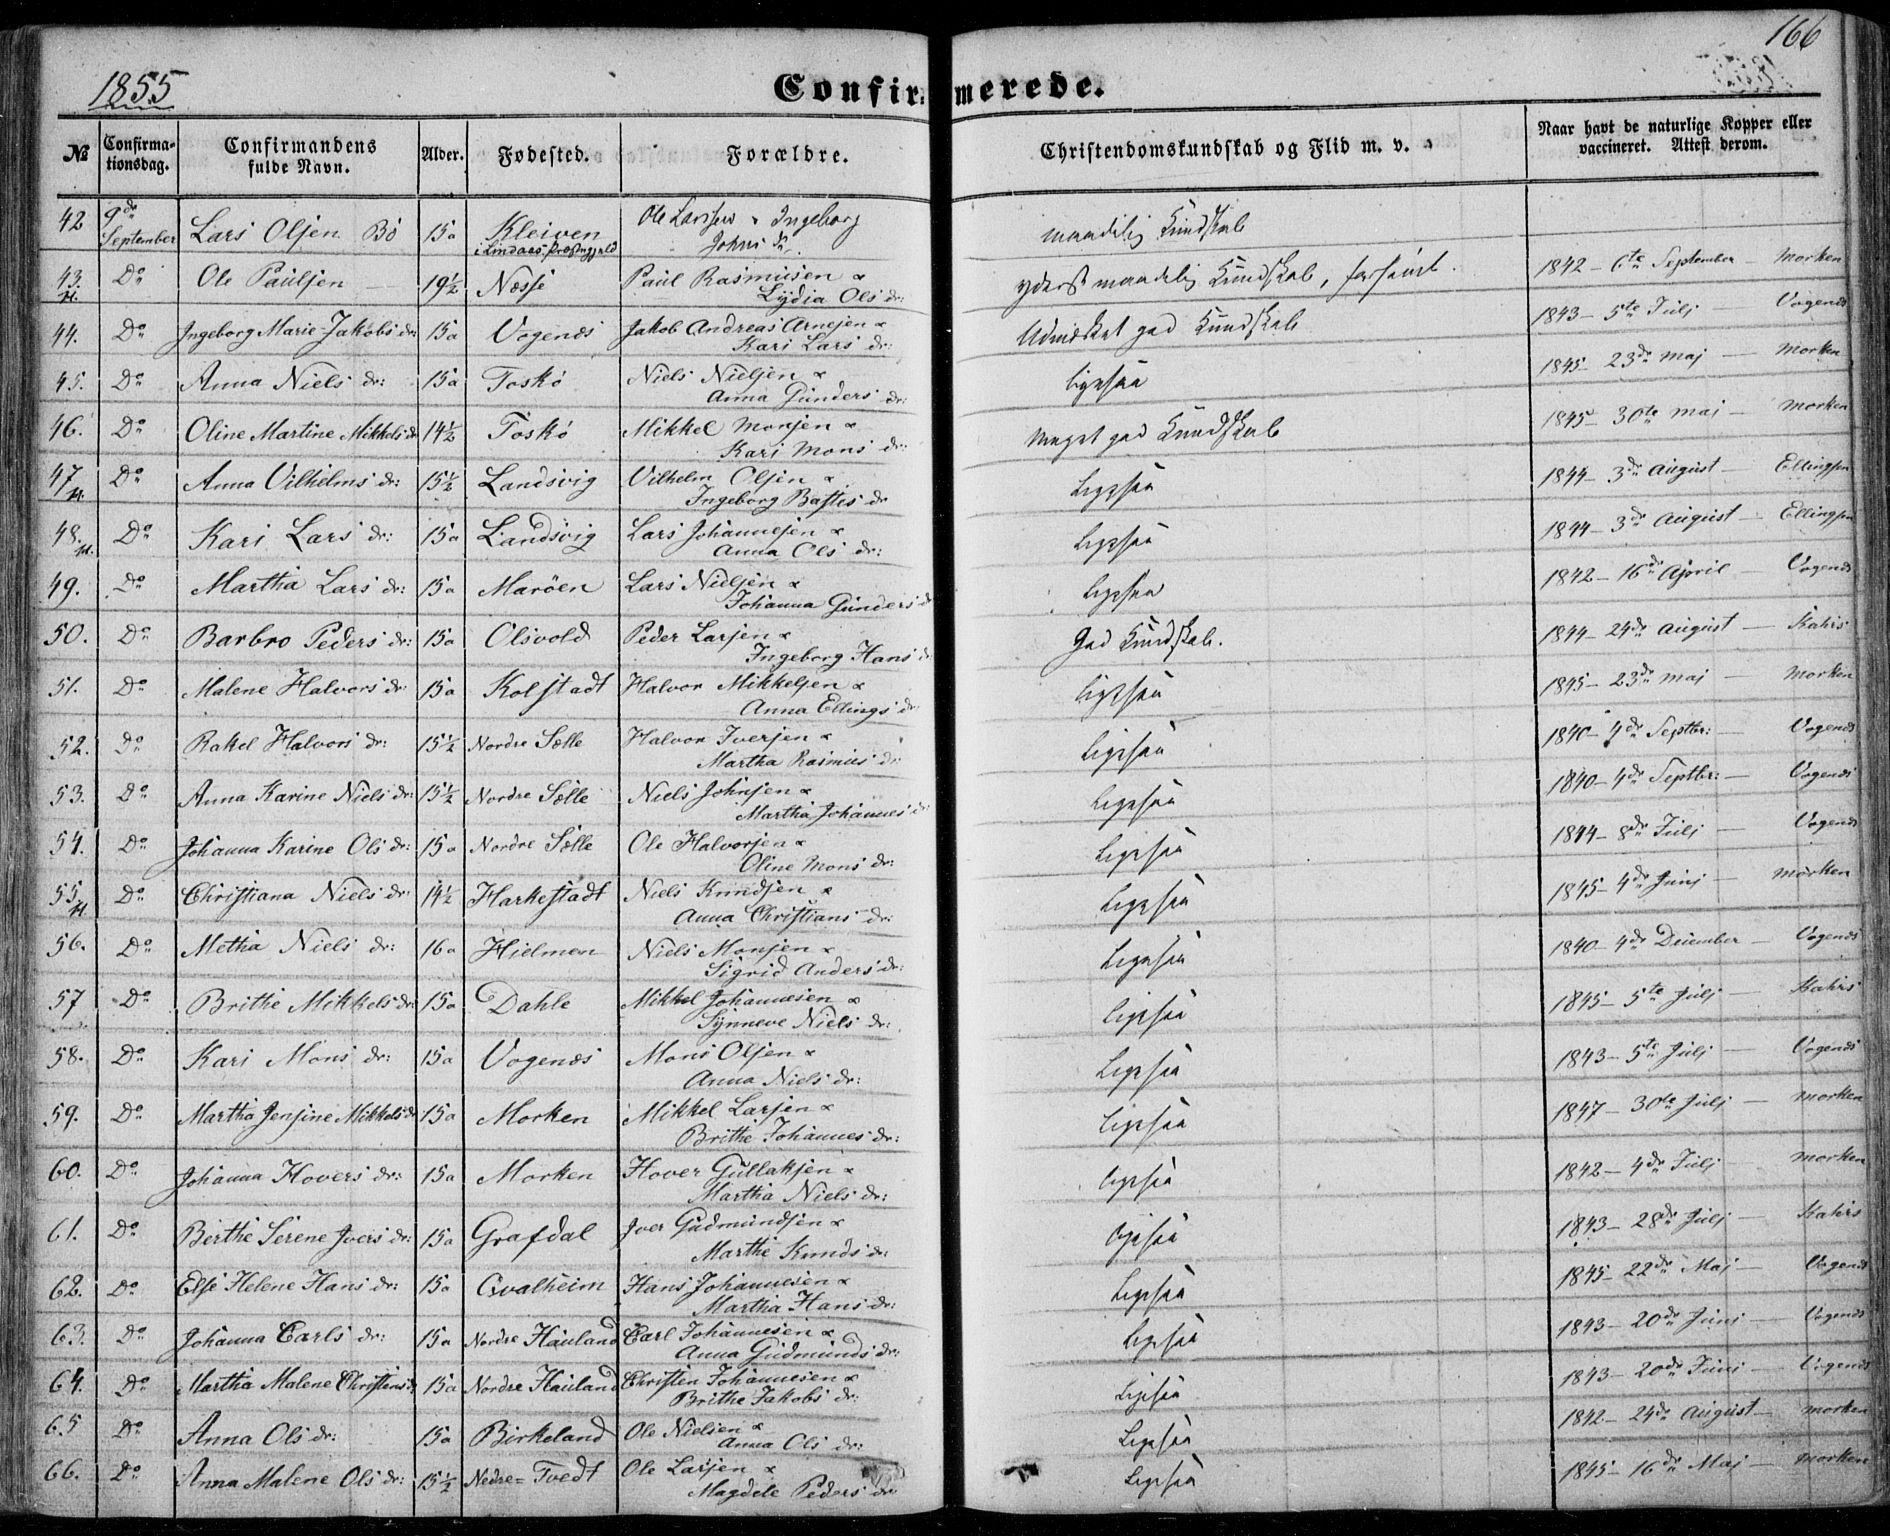 166
1855
Confirmerede.
№ Confirmationsdag. Confirmandens fulde Navn. Alder. Fødested. Forældre. Christendomskundskab og Flid m. v. Naar havt de naturlige Kopper eller vaccineret. Attest derom.
42 9de September Lars Olsen Bö 15a Kleiven i Lindaas Præstegjeld Ole Larssen & Ingeborg Johns dr. maadelig Kundskab
43. Do Ole Paulsen 19½ Næsse Paul Rasmusen & Lydia Ols dr: yderst maadelig Kundskab, forsömt. 1842 - 6te September - Morken
44. Do Ingeborg Marie Jakobs dr: 15a Vogenæs Jakob Andreas Arnesen & Kari Lars dr: Udmærket god Kundskab 1843 - 5te Julj - Vogenæs
45. Do Anna Niels dr: 15a Toskö Niels Nielsen & Anna Gunders dr: ligesaa 1845 - 23de Maj - Morken
46. Do Oline Martine Mikkels dr 14½ Toskö Mikkel Monsen & Kari Mons dr: Meget god Kundskab 1845 - 30te Maj - Morken
47. Do Anna Vilhelms dr: 15½ Landsvig Vilhelm Olsen & Ingeborg Bastes dr Ligesaa 1844 - 3de August - Ellingsen
48. Do Kari Lars dr: 15a Landsvig Lars Johannesen & Anna Ols dr: Ligesaa 1844 - 3de August - Ellingsen
49. Do Martha Lars dr: 15a Maröen Lars Nielsen & Johanna Gunders dr Ligesaa 1842 - 16de April - Vogenæs
50. Do Barbro Peders dr: 15a Olsvold Peder Larsen & Ingeborg Hans dr: God Kundskab. 1844 - 24de August - Kahrs
51. Do Malene Halvors dr: 15a Kolstadt Halvor Mikkelsen & Anna Ellings dr Ligesaa 1845 - 23de Maj - Morken
52. Do Rakel Halvors dr: 15½ Nordre Sælle Halvor Iversen & Martha Rasmus dr: Ligesaa 1840 - 4de Septbr: - Vogenæs
53. Do Anna Karine Niels dr: 15½ Nordre Sælle Niels Johnsen & Martha Johannes dr Ligesaa 1840 - 4de Septbr: - Vogenæs
54. Do Johanna Karine Ols dr: 15a Nordre Sælle Ole Halvorsen & Oline Mons dr: Ligesaa 1844 - 8de Julj - Vogenæs
55. Do Christiana Niels dr: 14½ Harkestadt Niels Knudsen & Anna Christians dr: Ligesaa 1845 - 4de Junj - Morken
56. Do Metha Niels dr: 16a Hielmen Niels Monsen & Sigrid Anders dr: Ligesaa 1840 - 4de December - Vogenæs
57 Do Brithe Mikkels dr: 15a Dahle Mikkel Johannesen & Synneve Niels dr: Ligesaa 1845 - 5te Julj - Kahrs
58. Do Kari Mons dr: 15a Vogenæs Mons Olsen & Anna Niels dr: Ligesaa 1843 - 5te Julj - Vogenæs
59. Do Martha Jensine Mikkels dr 15a Morken Mikkel Larsen & Brithe Johannes dr: Ligesaa 1847 - 30te Julj - Morken
60. Do Johanna Hovers dr: 15a Morken Hover Gullaksen & Martha Niels dr: Ligesaa 1842 - 4de Julj - Morken
61. Do Berthe Serene Ivers dr: 15a Grafdal Iver Gudmundsen & Marthe Knuds dr: Ligesaa 1843 - 28de Julj - Kahrs
62. Do Else Helene Hans dr: 15a Qvalheim Hans Johannesen & Martha Hans dr: Ligesaa 1845 - 22de Maj - Vogenæs
63. Do Johanna Carls dr: 15a Nordre Hauland Carl Johannesen & Anna Gudmunds dr: Ligesaa 1843 - 20de Junj - Vogenæs
64. Do Martha Malene Christens dr 15a Nordre Hauland Christen Johannesen & Brithe Jakobs dr: Ligesaa 1843 - 20de Junj - Vogenæs
65 Do Anna Ols dr: 15a Birkeland Ole Nielsen & Anna Ols dr: Ligesaa 1842 - 24de August - Morken
66. Do Anna Malene Ols dr: 15½ Nedre= Tvedt Ole Larsen & Magdele Peders dr Ligesaa 1845 - 16de Maj - Morken